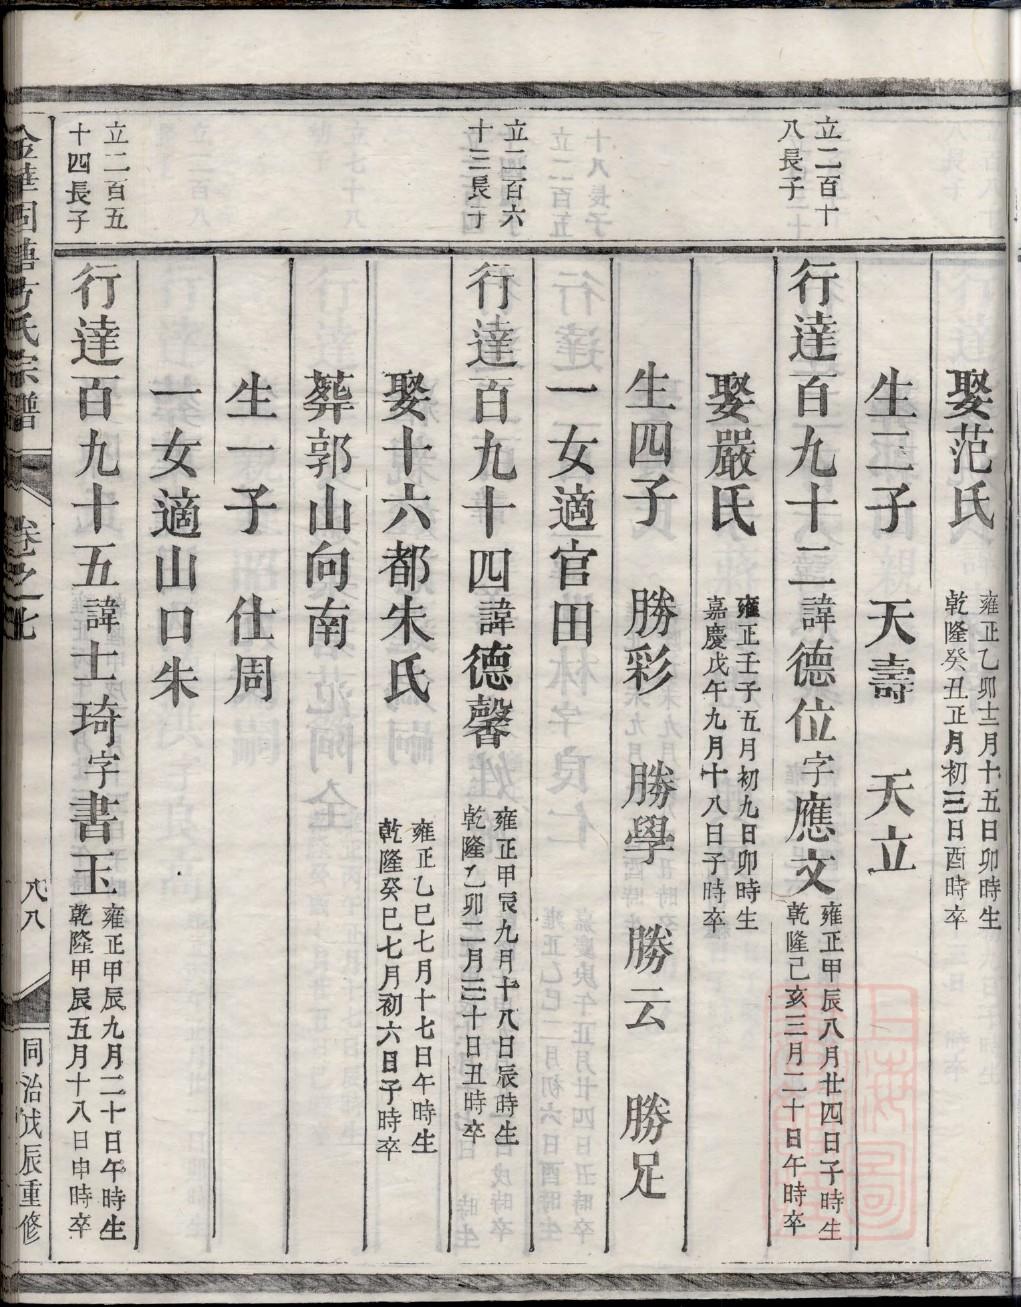 娶范氏
雍正乙卯十二月十五日卯時生
乾隆癸丑正月初三日酉時卒
生二子 天壽 天立
立二百十
八長子
行達百九十三諱德位字應文
雍正甲辰八月廿四日子時生
乾隆己亥三月二十日午時卒
娶嚴氏
雍正壬子五月初九日卯時生
嘉慶戊午九月十八日子時卒
生四子 勝彩 勝學 勝云 勝足
一女適官田
立二百六
十三長子
行達百九十四諱德馨
雍正甲辰九月十八日辰時生
乾隆乙卯二月三十日丑時卒
娶十六都朱氏
雍正乙巳七月十七日午時生
乾隆癸巳七月初六日子時卒
葬郭山向南
生一子 仕周
一女適山口朱
立二百五
十四長子
行達百九十五諱士琦字書玉
雍正甲辰九月二十日午時生
乾隆甲辰五月十八日申時卒
氏宗譜 卷之七 八八 同治戊辰重修